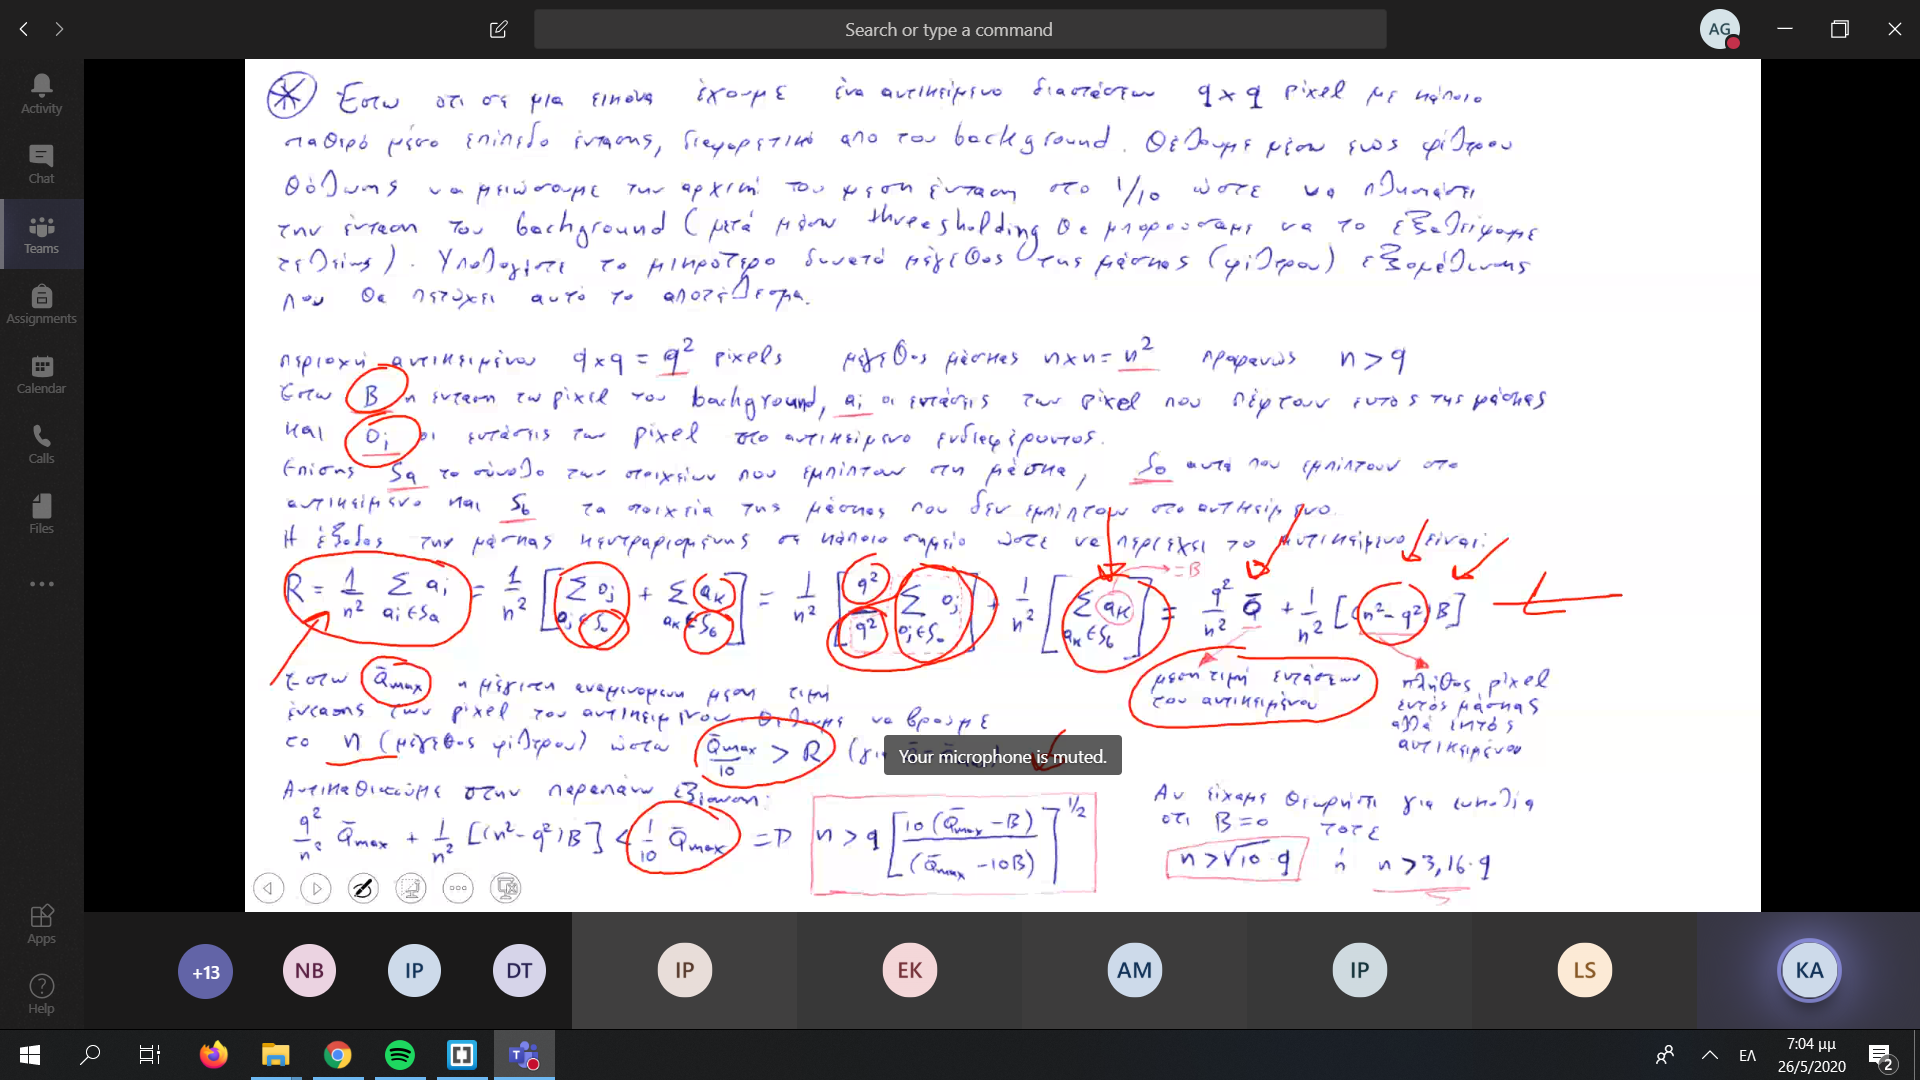 Search or type a command
AG
Activity
Chat
Teams
Assignments
Calendar
Calls
Files
Apps
Help
Έστω οτι σε μια εικόνα έχουμε ένα αντικείμενο διαστάσεων q x q pixel με κάποιο
σταθερό μέσο επίπεδο έντασης, διαφορετικό απο του background. Θέλουμε μέσω ενός φίλτρου
θόλωσης να μειώσουμε την αρχική του μεση ένταση στο 1/10 ώστε να πλησιάσει
την ένταση του background (μετά μέσω thresholding θα μπορούσαμε να το εξαλείψουμε
τελείως). Υπολογίστε το μικρότερο δυνατό μέγεθος της μάσκας (φίλτρου) εξομάλυνσης
που θα πετύχει αυτό το αποτέλεσμα.
περιοχή αντικειμένου q x q = q² pixels μέγεθος μάσκας n x n = n² προφανώς n > q
Έστω B η ένταση των pixel του background, ai οι εντάσεις των pixel που πέφτουν εντός της μάσκας
και Oj οι εντάσεις των pixel στο αντικείμενο ενδιαφέροντος.
Επίσης Sa το σύνολο των στοιχείων που εμπίπτουν στη μάσκα, So αυτά που εμπίπτουν στο
αντικείμενο και Sb τα στοιχεία της μάσκας που δεν εμπίπτουν στο αντικείμενο.
Η έξοδος της μάσκας κεντραρισμένης σε κάποιο σημείο ώστε να περιέχει το αντικείμενο είναι:
R = 1/n² Σ ai = 1/n² [Σ Oj + Σ aK] = 1/n² [q²/q² Σ Oj] + 1/n² [Σ aK] = q²/n² Q̄ + 1/n² [(n²-q²)B]
ai∈Sa oj∈So aK∈Sb Oj∈So aK∈Sb
= B
μέση τιμή εντάσεων
του αντικειμένου
πλήθος pixel
εντός μάσκας
αλλά εκτός
αντικειμένου
Έστω Q̄max η μέγιστη αναμενομενη μεση τιμή
έντασης των pixel του αντικειμένου. Θέλουμε να βρούμε
το n (μέγεθος φίλτρου) ώστε Q̄max/10 > R
Your microphone is muted.
Αντικαθιστούμε στην παραπάνω εξίσωση:
q²/n² Q̄max + 1/n² [(n²-q²)B] < 1/10 Q̄max => n > q [10(Q̄max - B)/(Q̄max - 10B)]^1/2
Αν είχαμε θεωρήσει για ευκολία
οτι B=0 τοτε
n > √10·q ή n > 3,16·q
+13
NB
IP
DT
IP
EK
AM
IP
LS
KA
ΕΛ
7:04 μμ
26/5/2020
2